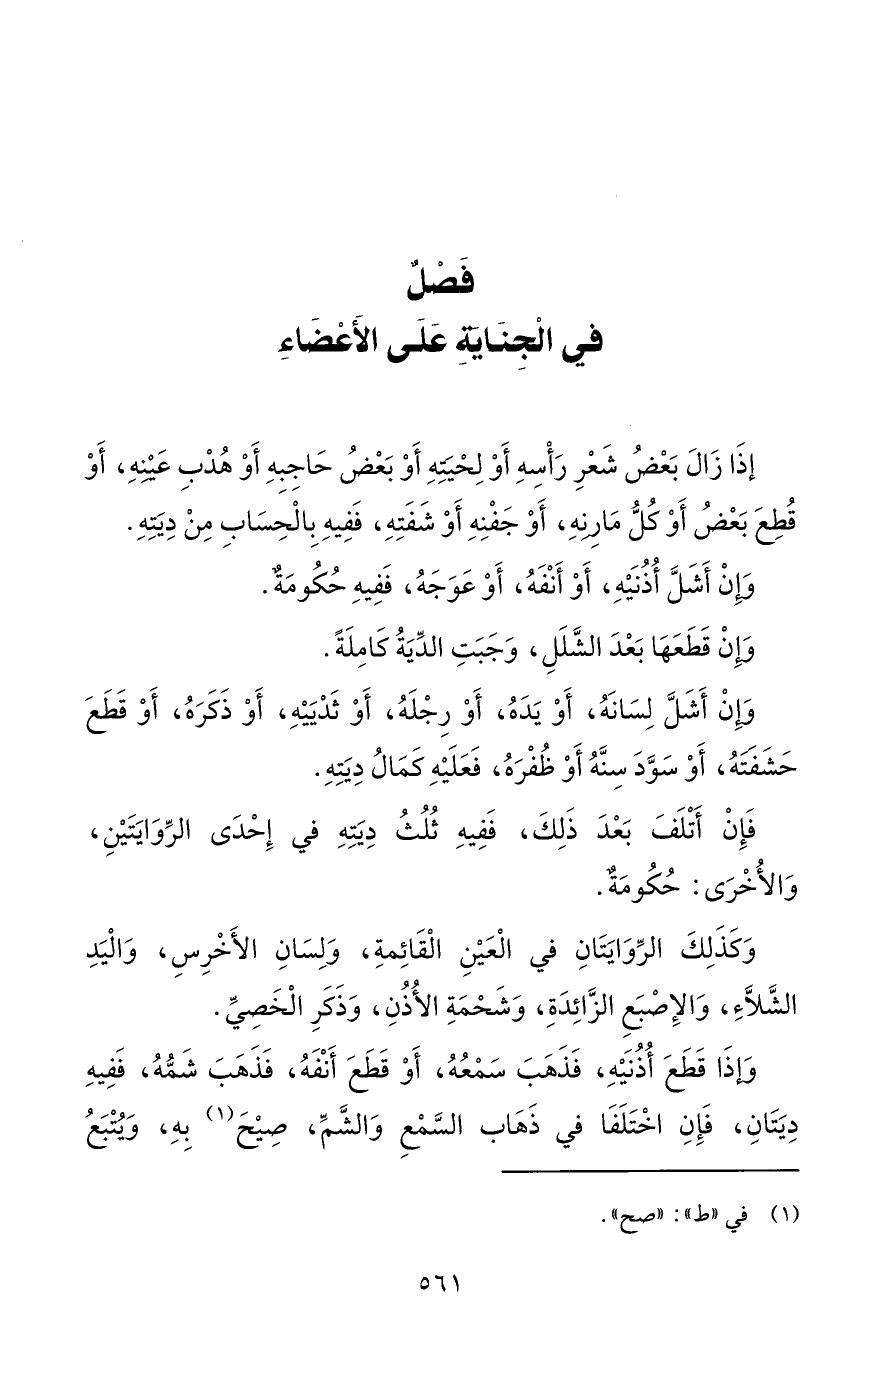 فَصْلٌ
في الْجِنَايَةِ عَلَى الأَعْضَاءِ
إِذَا زَالَ بَعْضُ شَعْرِ رَأْسِهِ أَوْ لِحْيَتِهِ أَوْ بَعْضُ حَاجِبِهِ أَوْ هُدْبِ عَيْنِهِ، أَوْ
قُطِعَ بَعْضُ أَوْ كُلُّ مَارِنِهِ، أَوْ جَفْنِهِ أَوْ شَفَتِهِ، فَفِيهِ بِالْحِسَابِ مِنْ دِيَتِهِ.
وَإِنْ أَشَلَّ أُذُنَيْهِ، أَوْ أَنْفَهُ، أَوْ عَوَجَهُ، فَفِيهِ حُكُومَةٌ.
وَإِنْ قَطَعَهَا بَعْدَ الشَّلَلِ، وَجَبَتِ الدِّيَةُ كَامِلَةً.
وَإِنْ أَشَلَّ لِسَانَهُ، أَوْ يَدَهُ، أَوْ رِجْلَهُ، أَوْ ثَدْيَيْهِ، أَوْ ذَكَرَهُ، أَوْ قَطَعَ
حَشَفَتَهُ، أَوْ سَوَّدَ سِنَّهُ أَوْ ظُفْرَهُ، فَعَلَيْهِ كَمَالُ دِيَتِهِ.
فَإِنْ أَتْلَفَ بَعْدَ ذَلِكَ، فَفِيهِ ثُلُثُ دِيَتِهِ في إِحْدَى الرِّوَايَتَيْنِ،
وَالأُخْرَى: حُكُومَةٌ.
وَكَذَلِكَ الرِّوَايَتَانِ في الْعَيْنِ الْقَائِمةِ، وَلِسَانِ الأَخْرِسِ، وَالْيَدِ
الشَّلاَّءِ، وَالإِصْبَعِ الزَّائِدَةِ، وَشَحْمَةِ الأُذُنِ، وَذَكَرِ الْخَصِيِّ.
وَإِذَا قَطَعَ أُذُنَيْهِ، فَذَهَبَ سَمْعُهُ، أَوْ قَطَعَ أَنْفَهُ، فَذَهَبَ شَمُّهُ، فَفِيهِ
دِيَتَانِ، فَإِنِ اخْتَلَفَا في ذَهَابِ السَّمْعِ وَالشَّمِّ، صِيْحَ(١) بِهِ، وَيُتْبَعُ
(١) في «ط»: «صح».
٥٦١